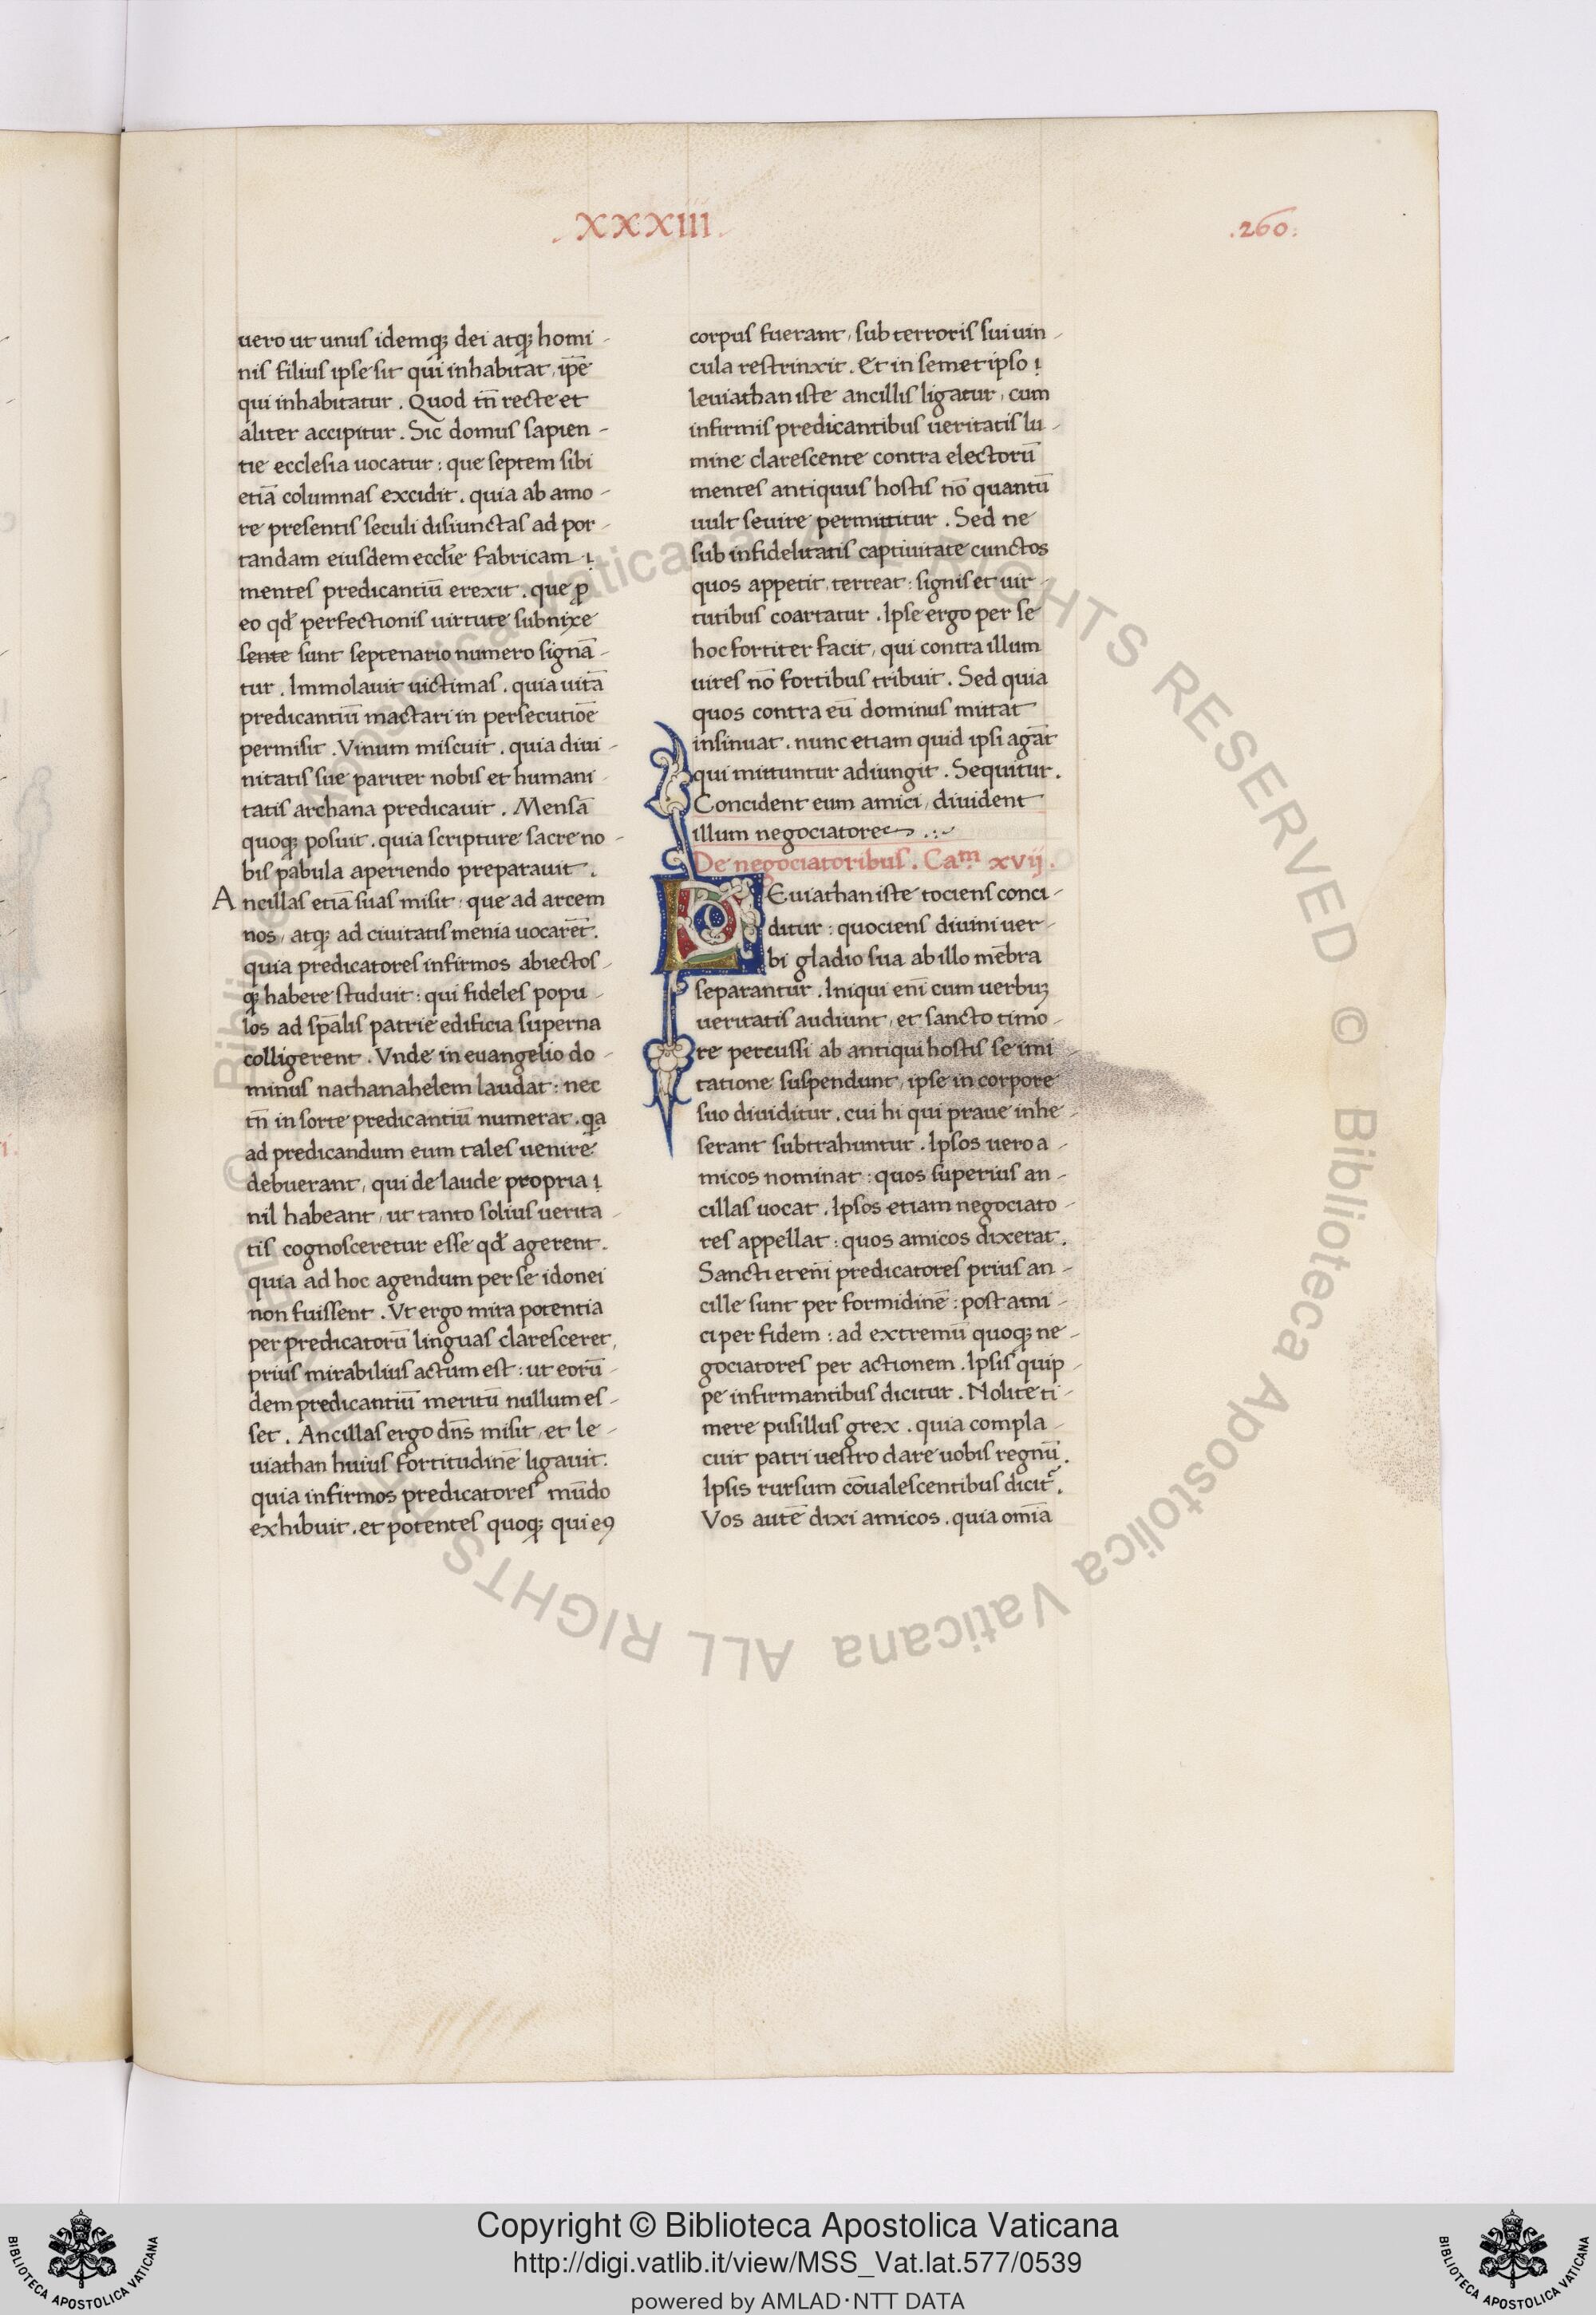 .XXXIII.
.260.
uero ut unus idemq; dei atq; homi-
nis filius ipse sit qui inhabitat, ip̄e
qui inhabitatur. Quod tn̄ recte et
aliter accipitur. Sic domus sapien-
tie ecclesia uocatur: que septem sibi
etiā columnas excidit. quia ab amo-
re presentis seculi disiunctas ad por-
tandam eiusdem eccl̄ie fabricam ⁊
mentes predicantiū erexit. que ꝓ
eo qd̄ perfectionis uirtute subnixe
sente sunt septenario numero signā-
tur. Immolauit uictimas. quia uitā
predicantiū mactari in persecutiōe
permisit. Vinum miscuit. quia diui-
nitatis sue pariter nobis et humani-
tatis archana predicauit. Mensā
quoq; posuit. quia scripture sacre no-
bis pabula aperiendo preparauit.
Ancillas etiā suas misit: que ad arcem
nos, atq; ad ciuitatis menia uocarēt.
quia predicatores infirmos abiectos-
q; habere studuit: qui fideles popu-
los ad sp̄alis patrie edificia superna
colligerent. Vnde in euangelio do-
minus nathanahelem laudat: nec
tn̄ in sorte predicantiū numerat. qa
ad predicandum eum tales uenire
debuerant, qui de laude propria
nil habeant, ut tanto solius uerita-
tis cognosceretur esse qd̄ agerent.
quia ad hoc agendum per se idonei
non fuissent. Vt ergo mira potentia
per predicatorū linguas claresceret,
prius mirabilius actum est: ut eorū-
dem predicantiū meritū nullum es-
set. Ancillas ergo dn̄s misit, et le-
uiathan huius fortitudinē ligauit.
quia infirmos predicatores mūdo
exhibuit. et potentes quoq; qui eꝰ
corpus fuerant, sub terroris sui uin-
cula restrinxit. Et in semet ipso
leuiathan iste ancillis ligatur, cum
infirmis predicantibus ueritatis lu-
mine clarescente contra electorū
mentes antiquus hostis nō quantū
uult seuire permittitur. Sed ne
sub infidelitatis captiuitate cunctos
quos appetit, terreat: signis et uir-
tutibus coartatur. Ipse ergo per se
hoc fortiter facit, qui contra illum
uires nō fortibus tribuit. Sed quia
quos contra eū dominus mittat
insinuat. nunc etiam quid ipsi agāt
qui mittuntur adiungit. Sequitur.
Concident eum amici, diuident
illum negociatores .:~
De negociatoribus. Caᵐ xvij.
LEuiathan iste tociens conci-
ditur: quociens diuini uer-
bi gladio sua ab illo mēbra
separantur. Iniqui eni̅ cum uerbuȝ
ueritatis audiunt, et sancto timo-
re percussi ab antiqui hostis se imi-
tatione suspendunt, ipse in corpore
suo diuiditur. cui hi qui praue inhe-
serant subtrahuntur. Ipsos uero a-
micos nominat: quos superius an-
cillas uocat. Ipsos etiam negociato-
res appellat: quos amicos dixerat.
Sancti eteni̅ predicatores prius an-
cille sunt per formidinē: post ami-
ci per fidem: ad extremū quoq; ne-
gociatores per actionem. Ipsis quip-
pe infirmantibus dicitur. Nolite ti-
mere pusillus grex. quia compla-
cuit patri uestro dare uobis regnū.
Ipsis rursum cōualescentibus dicit᷑.
Vos autē dixi amicos. quia om̄ia
© Biblioteca Apostolica Vaticana ALL RIGHTS RESERVED © Biblioteca Apostolica Vaticana ALL RIGHTS RESERVED
Copyright © Biblioteca Apostolica Vaticana
http://digi.vatlib.it/view/MSS_Vat.lat.577/0539
powered by AMLAD·NTT DATA
BIBLIOTECA APOSTOLICA VATICANA
BIBLIOTECA APOSTOLICA VATICANA